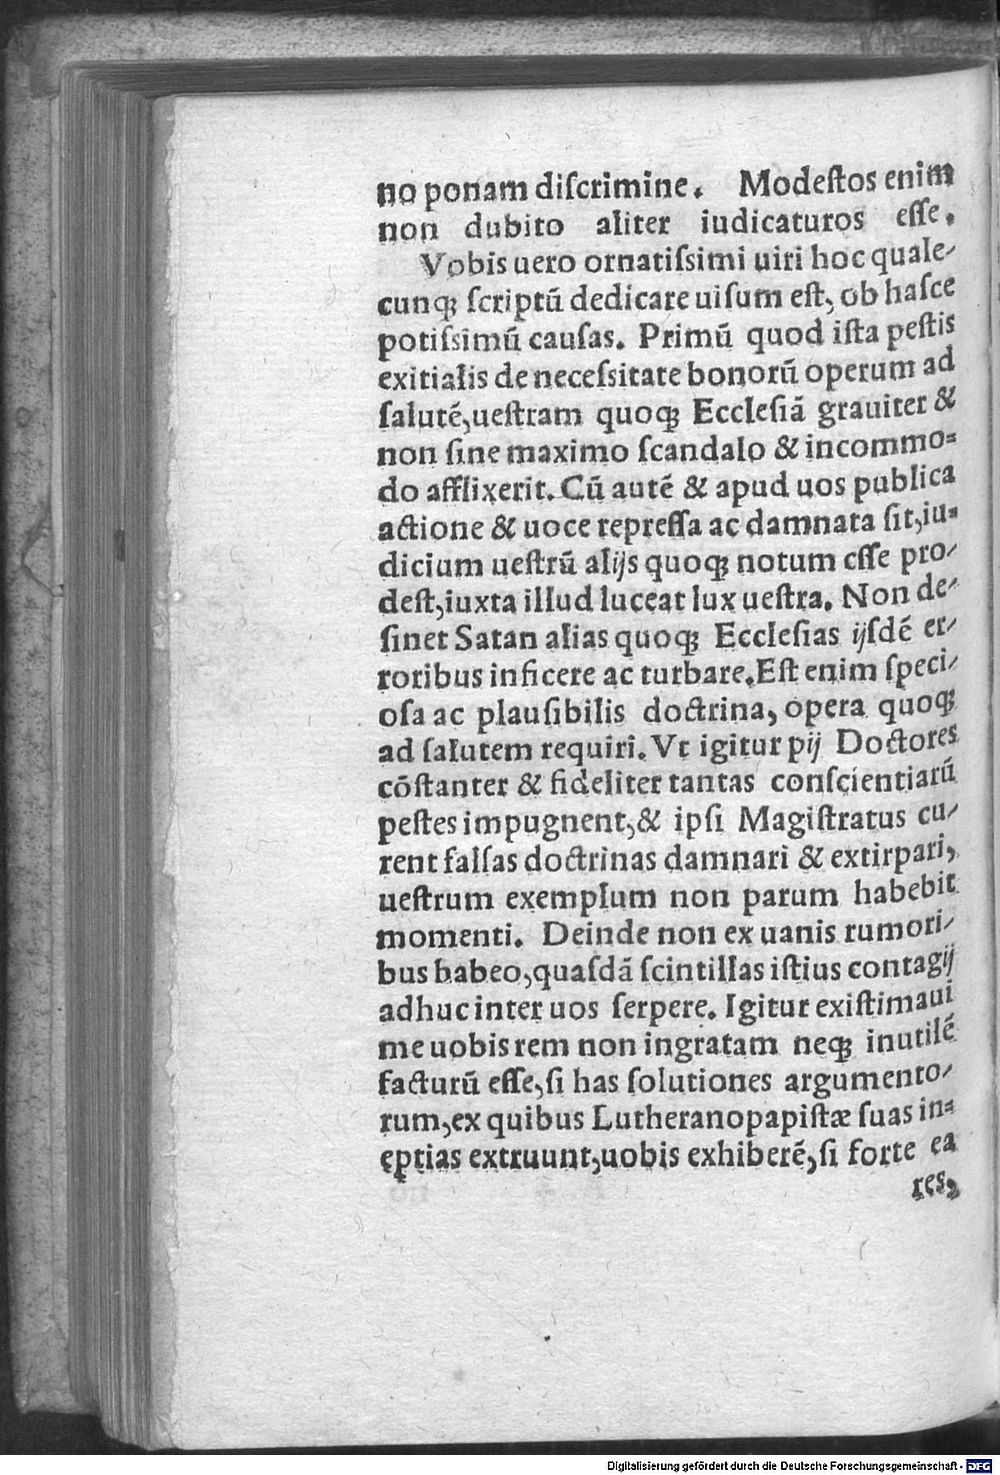 no ponam diſcrimine. Modeſtos enim
non dubito aliter iudicaturos eſſe.
Vobis uero ornatiſsimi uiri hoc quale-
cunqꝫ ſcriptū dedicare uiſum eſt, ob haſce
potiſsimū cauſas. Primū quod iſta peſtis
exitialis de neceſsitate bonorū operum ad
ſalutē, ueſtram quoqꝫ Eccleſiā grauiter &
non ſine maximo ſcandalo & incommo-
do afflixerit. Cū autē & apud uos publica
actione & uoce repreſſa ac damnata ſit, iu-
dicium ueſtrū alijs quoqꝫ notum eſſe pro-
deſt, iuxta illud luceat lux ueſtra. Non de-
ſinet Satan alias quoqꝫ Eccleſias ijſdē er-
roribus inficere ac turbare. Eſt enim ſpeci-
oſa ac plauſibilis doctrina, opera quoqꝫ
ad ſalutem requiri. Vt igitur pij Doctores
cōſtanter & fideliter tantas conſcientiarū
peſtes impugnent, & ipſi Magiſtratus cu-
rent falſas doctrinas damnari & extirpari,
ueſtrum exemplum non parum habebit
momenti. Deinde non ex uanis rumori-
bus habeo, quaſdā ſcintillas iſtius contagij
adhuc inter uos ſerpere. Igitur exiſtimaui
me uobis rem non ingratam neqꝫ inutilē
facturū eſſe, ſi has ſolutiones argumento-
rum, ex quibus Lutheranopapiſtæ ſuas in-
eptias extruunt, uobis exhiberē, ſi forte ea
res,
Digitalisierung gefördert durch die Deutsche Forschungsgemeinschaft - DFG